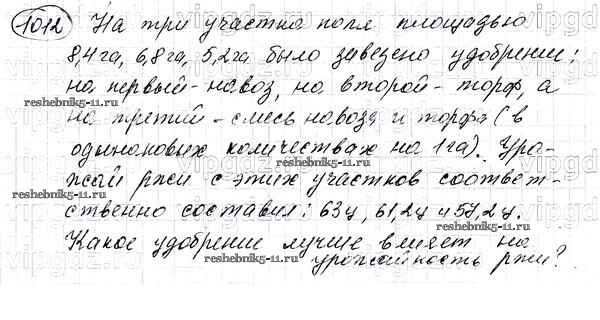 1012 На три участка поля площадью
8,4 га, 6,8 га, 5,2 га было завезено удобрение:
на первый - навоз, на второй - торф, а
на третий - смесь навоза и торфа (в
одинаковых количествах на 1 га). Уро-
жай ржи с этих участков соответ-
ственно составил: 63 ц, 61,2 ц и 57,2 ц.
Какое удобрение лучше влияет на
урожайность ржи?
reshebnik5-11.ru
reshebnik5-11.ru
reshebnik5-11.ru
reshebnik5-11.ru
reshebnik5-11.ru